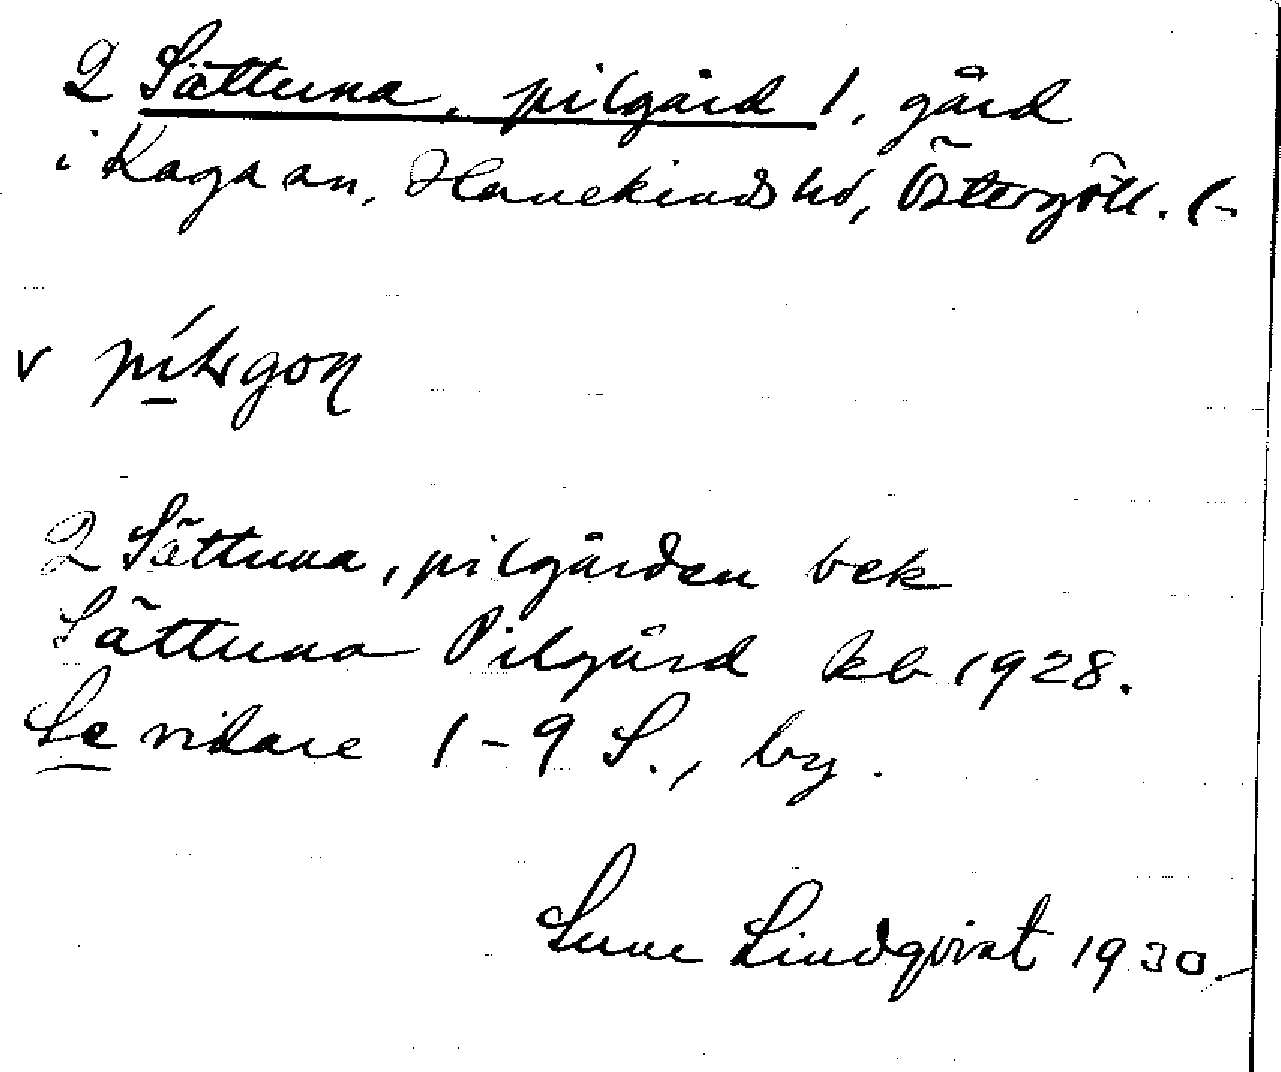 2 Sättuna, pilgård 1, gård
i Kaga sn, Hanekinds hd, Östergötl. (-
v
2 Sättuna, pilgården bek
Sättuna Pilgård kb 1928.
Se vidare 1-9 S., by.
Sune Lindqvist 1930.